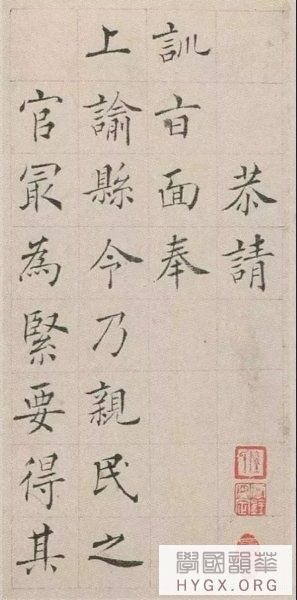 恭請
訓旨面奉
上諭縣令乃親民之
官最為緊要得其
華韻國學
HYGX.ORG